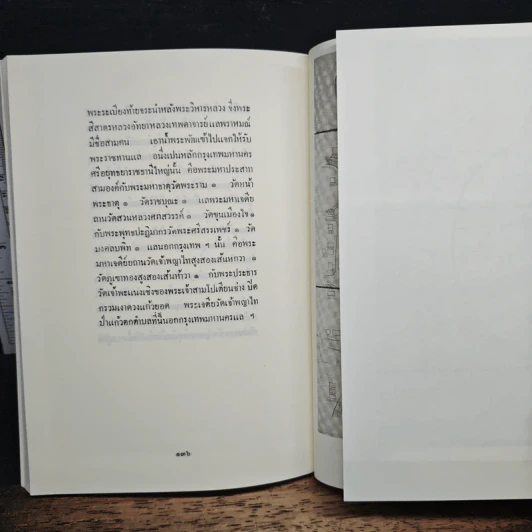 พระระเบียงท้ายจระนำหลังพระวิหารหลวง จึ่งพระ
สีสาครหลวงอัทยาหลวงเทพตาจารย์แลพราหมณ์
มีชื่อสามคน เอาน้ำพระพิพัฒเข้าไปแจกให้รับ
พระราชทานแล อนึ่งเปนหลักกรุงเทพมหานคร
ศรีอยุทธยาราชธานีใหญ่นั้น คือพระมหาปราสาท
สามองค์กับพระมหาธาตุวัดพระราม ๑ วัดหน้า
พระธาตุ ๑ วัดราชบุณะ ๑ แลพระมหาเจดีย
ถานวัดสวนหลวงศภสวรรค์ ๑ วัดขุนเมืองใจ ๑
กับพระพุทธปะฏิมากรวัดพระศรีสรรเพชร์ ๑ วัด
มงคลบพิท ๑ แลนอกกรุงเทพ ฯ นั้น คือพระ
มหาเจดีย์ยถานวัดเจ้าพญาไทสูงสองเส้นหกวา ๑
วัดภูเขาทองสูงสองเส้นห้าวา ๑ กับพระประธาร
วัดเจ้าพะแนงเชิงของพระเจ้าสามโปเตียนอ่าง ปิด
กรวมเงาดวงแก้วยอด พระเจดียวัดเจ้าพญาไท
ป่าแก้วตกตำบลที่นี้นอกกรุงเทพมหานครแล ฯ
๑๓๖